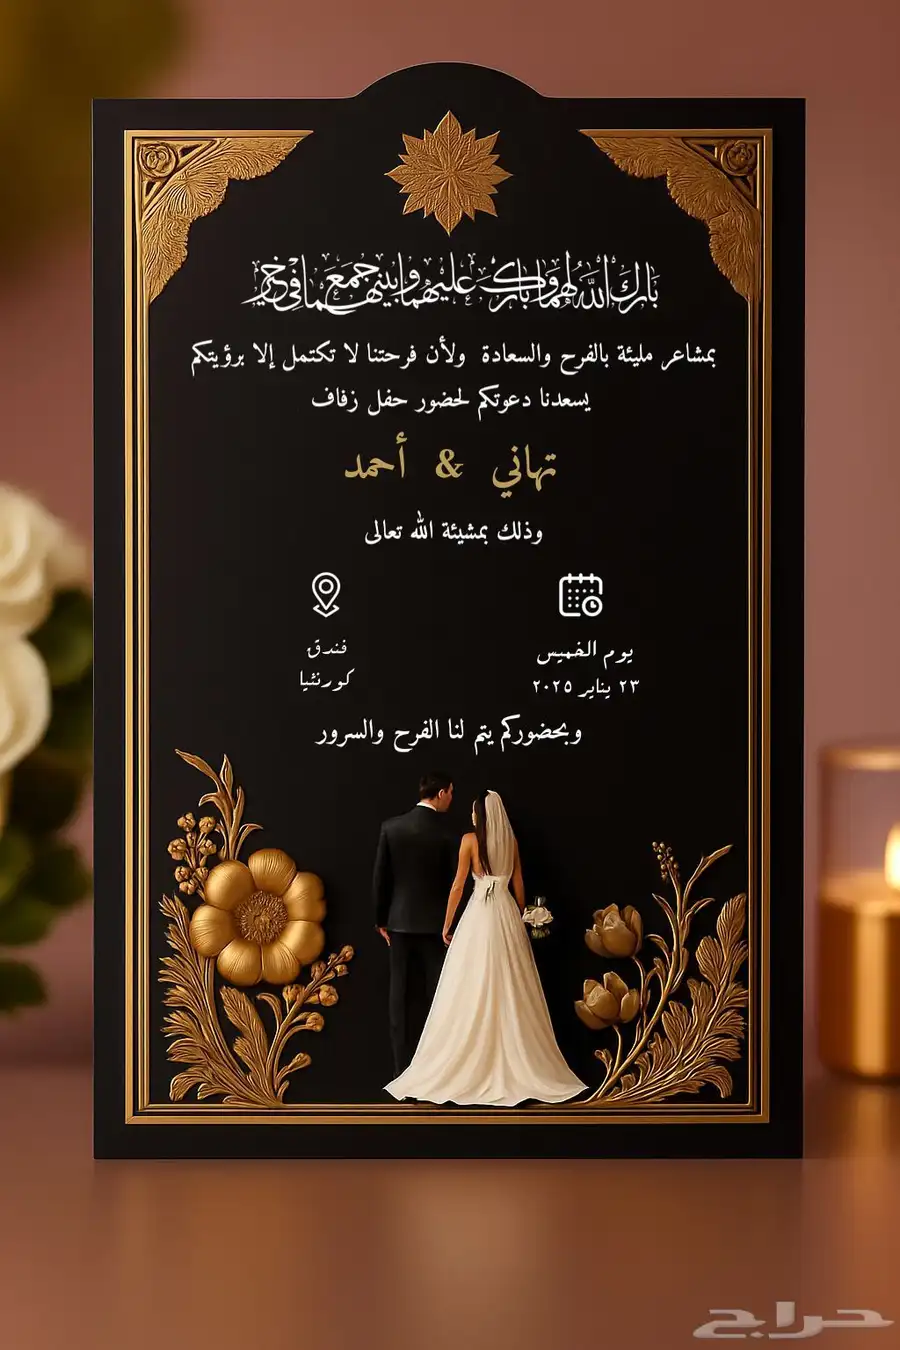 بارك الله لهما وبارك عليهما وجمع بينهما في خير
بمشاعر مليئة بالفرح والسعادة ولأن فرحتنا لا تكتمل إلا برؤيتكم
يسعدنا دعوتكم لحضور حفل زفاف
تهاني & أحمد
وذلك بمشيئة الله تعالى
يوم الخميس
٢٣ يناير ٢٠٢٥
فندق
كورنثيا
وبحضوركم يتم لنا الفرح والسرور
حراج